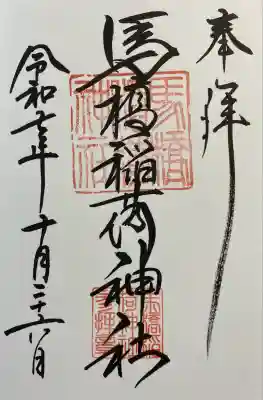 奉拝
馬橋稲荷神社
令和六年十月二十六日